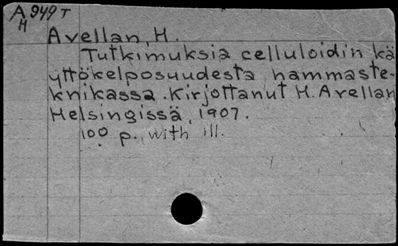 A 949 T
H
Avellan, H.
Tutkimuksia celluloidin kä
yttökelposuudesta hammaste-
knikassa. Kirjottanut H. Avellan
Helsingissä, 1907.
100 p., with ill.